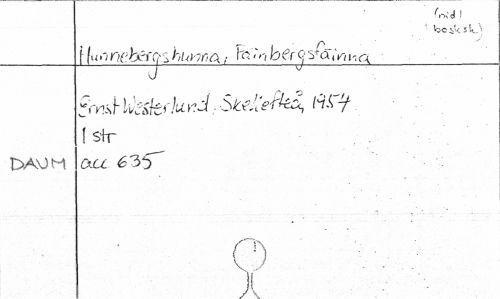 (nidl
boksk)
Hunnebergshunna, Fainbergsfäinna
Ernst Westerlund, Skellefteå, 1954
1 str
DAUM acc 635